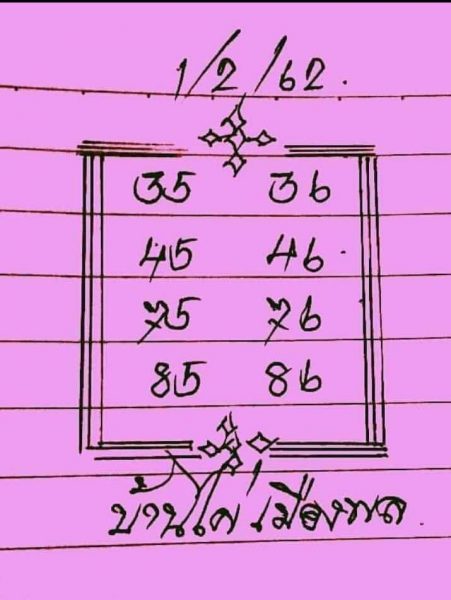 1/2/62.
35 36
45 46
75 76
85 86
บ้านไผ่ เมืองพล